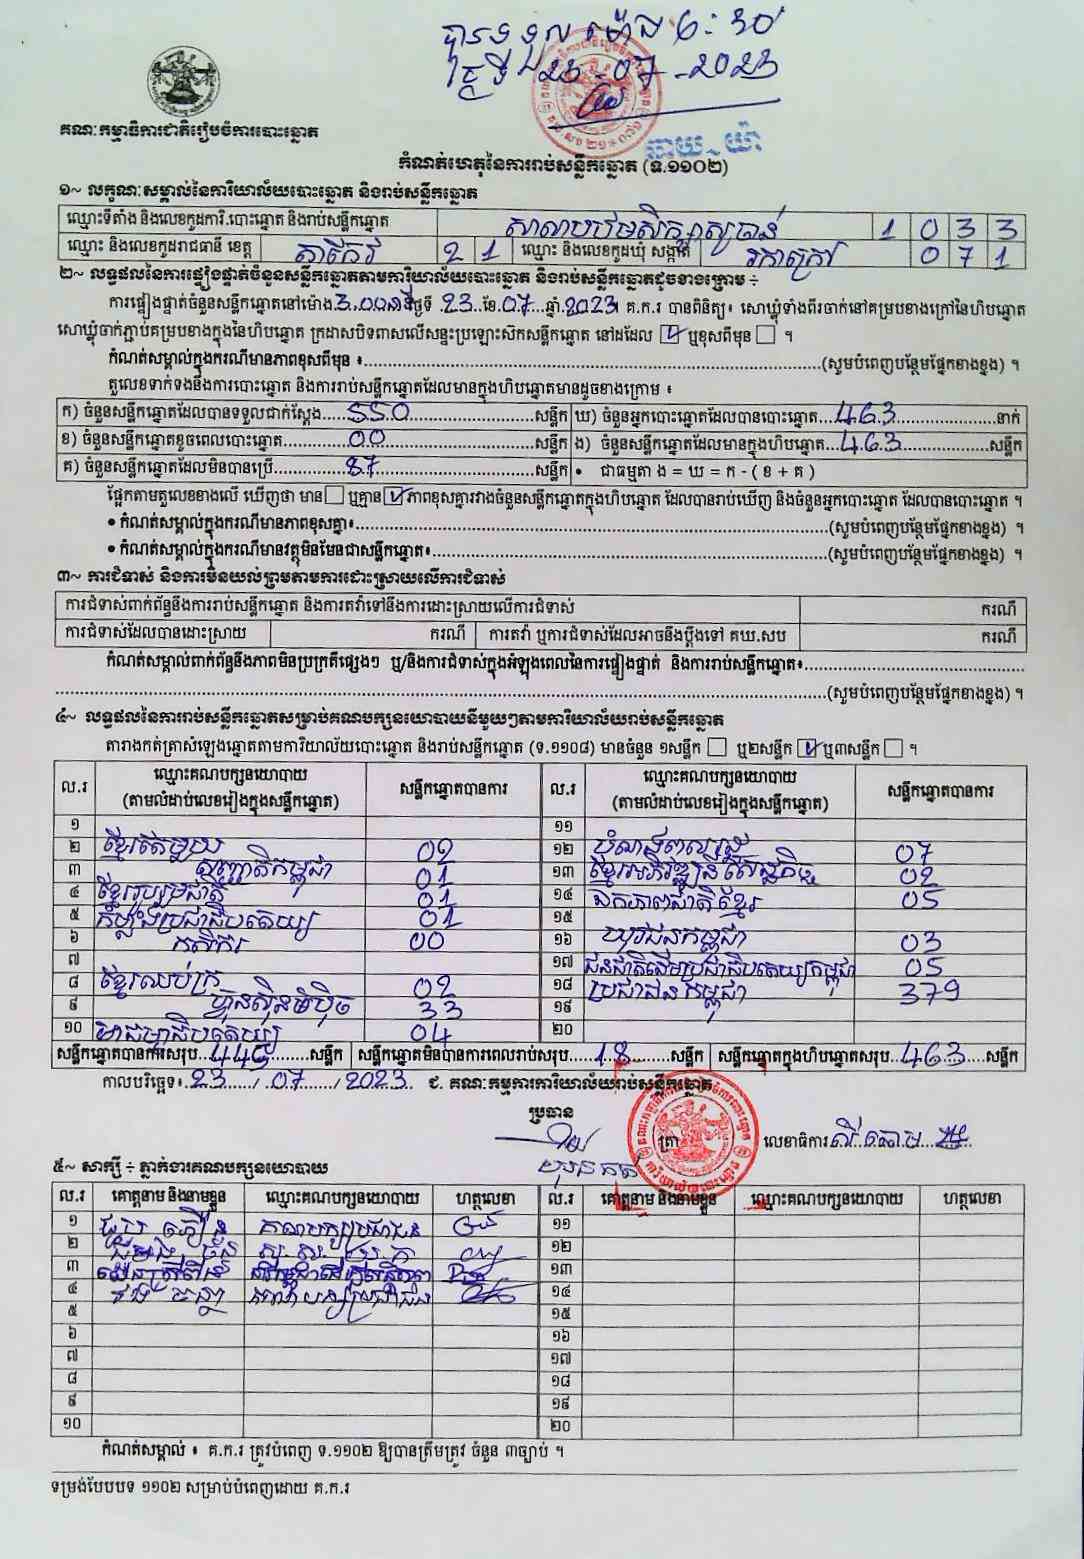 បានទទួល ម៉ោង 6:30
ថ្ងៃទី 23-07-2023
ឆាយ យ៉ា
គណៈកម្មាធិការជាតិរៀបចំការបោះឆ្នោត
កំណត់ហេតុនៃការរាប់សន្លឹកឆ្នោត (ទ.១១០២)
១~ លក្ខណៈសម្គាល់នៃការិយាល័យបោះឆ្នោត និងរាប់សន្លឹកឆ្នោត
ឈ្មោះទីតាំង និងលេខកូដការិ.បោះឆ្នោត និងរាប់សន្លឹកឆ្នោត សាលាបឋមសិក្សា 1 0 3 3
ឈ្មោះ និងលេខកូដរាជធានី ខេត្ត តាកែវ 2 1 ឈ្មោះ និងលេខកូដឃុំ សង្កាត់ រកាក្រៅ 0 7 1
២~ លទ្ធផលនៃការផ្ទៀងផ្ទាត់ចំនួនសន្លឹកឆ្នោតតាមការិយាល័យបោះឆ្នោត និងរាប់សន្លឹកឆ្នោតដូចខាងក្រោម ÷
ការផ្ទៀងផ្ទាត់ចំនួនសន្លឹកឆ្នោតនៅម៉ោង 3.00 ថ្ងៃទី 23 ខែ 07 ឆ្នាំ 2023 គ.ក.រ បានពិនិត្យ៖ សោឃ្លុំទាំងពីរចាក់នៅគម្របខាងក្រៅនៃហិបឆ្នោត
សោឃ្លុំចាក់ភ្ជាប់គម្របខាងក្នុងនៃហិបឆ្នោត ក្រដាសបិទពាសលើសន្ទះប្រឡោះស៊ិកសន្លឹកឆ្នោត នៅដដែល ☑ ឬខុសពីមុន ☐ ។
កំណត់សម្គាល់ក្នុងករណីមានភាពខុសពីមុន ៖ (សូមបំពេញបន្ថែមផ្នែកខាងខ្នង) ។
តួលេខទាក់ទងនឹងការបោះឆ្នោត និងការរាប់សន្លឹកឆ្នោតដែលមានក្នុងហិបឆ្នោតមានដូចខាងក្រោម ៖
ក) ចំនួនសន្លឹកឆ្នោតដែលបានទទួលជាក់ស្តែង 550 សន្លឹក ឃ) ចំនួនអ្នកបោះឆ្នោតដែលបានបោះឆ្នោត 463 នាក់
ខ) ចំនួនសន្លឹកឆ្នោតខូចពេលបោះឆ្នោត 00 សន្លឹក ង) ចំនួនសន្លឹកឆ្នោតដែលមានក្នុងហិបឆ្នោត 463 សន្លឹក
គ) ចំនួនសន្លឹកឆ្នោតដែលមិនបានប្រើ 87 សន្លឹក • ជាធម្មតា ង = ឃ = ក - ( ខ + គ )
ផ្អែកតាមតួលេខខាងលើ ឃើញថា មាន ☐ ឬគ្មាន ☑ ភាពខុសគ្នារវាងចំនួនសន្លឹកឆ្នោតក្នុងហិបឆ្នោត ដែលបានរាប់ឃើញ និងចំនួនអ្នកបោះឆ្នោត ដែលបានបោះឆ្នោត ។
• កំណត់សម្គាល់ក្នុងករណីមានភាពខុសគ្នា៖ (សូមបំពេញបន្ថែមផ្នែកខាងខ្នង) ។
• កំណត់សម្គាល់ក្នុងករណីមានវត្ថុមិនមែនជាសន្លឹកឆ្នោត៖ (សូមបំពេញបន្ថែមផ្នែកខាងខ្នង) ។
៣~ ការជំទាស់ និងការមិនយល់ព្រមតាមការដោះស្រាយលើការជំទាស់
ការជំទាស់ពាក់ព័ន្ធនឹងការរាប់សន្លឹកឆ្នោត និងការតវ៉ាទៅនឹងការដោះស្រាយលើការជំទាស់ ករណី
ការជំទាស់ដែលបានដោះស្រាយ ករណី ការតវ៉ា ឬការជំទាស់ដែលអាចនឹងប្តឹងទៅ គឃ.សប ករណី
កំណត់សម្គាល់ពាក់ព័ន្ធនឹងភាពមិនប្រក្រតីផ្សេងៗ ឬ/និងការជំទាស់ក្នុងអំឡុងពេលនៃការផ្ទៀងផ្ទាត់ និងការរាប់សន្លឹកឆ្នោត៖
(សូមបំពេញបន្ថែមផ្នែកខាងខ្នង) ។
៤~ លទ្ធផលនៃការរាប់សន្លឹកឆ្នោតសម្រាប់គណបក្សនយោបាយនីមួយៗតាមការិយាល័យរាប់សន្លឹកឆ្នោត
តារាងកត់ត្រាសំឡេងឆ្នោតតាមការិយាល័យបោះឆ្នោត និងរាប់សន្លឹកឆ្នោត (ទ.១១០៨) មានចំនួន ១សន្លឹក ☐ ឬ២សន្លឹក ☑ ឬ៣សន្លឹក ☐ ។
ល.រ ឈ្មោះគណបក្សនយោបាយ (តាមលំដាប់លេខរៀងក្នុងសន្លឹកឆ្នោត) សន្លឹកឆ្នោតបានការ ល.រ ឈ្មោះគណបក្សនយោបាយ (តាមលំដាប់លេខរៀងក្នុងសន្លឹកឆ្នោត) សន្លឹកឆ្នោតបានការ
១ ១១
២ ខ្មែរតែមួយ 02 ១២ សំណាញ់ពលរដ្ឋ 07
៣ សញ្ជាតិកម្ពុជា 01 ១៣ ខ្មែរអភិវឌ្ឍន៍សេដ្ឋកិច្ច 02
៤ ខ្មែររួបរួមជាតិ 01 ១៤ ឯកភាពជាតិខ្មែរ 05
៥ កម្លាំងប្រជាធិបតេយ្យ 01 ១៥
៦ កសិករ 00 ១៦ យុវជនកម្ពុជា 03
៧ ១៧ ជនជាតិដើមប្រជាធិបតេយ្យកម្ពុជា 05
៨ ខ្មែរឈប់ក្រ 02 ១៨ ប្រជាជនកម្ពុជា 379
៩ ហ៊្វុនស៊ិនប៉ិច 33 ១៩
១០ មាតាធិបតេយ្យ 04 ២០
សន្លឹកឆ្នោតបានការសរុប 445 សន្លឹក សន្លឹកឆ្នោតមិនបានការពេលរាប់សរុប 18 សន្លឹក សន្លឹកឆ្នោតក្នុងហិបឆ្នោតសរុប 463 សន្លឹក
កាលបរិច្ឆេទ៖ 23/07/2023 ជ. គណៈកម្មការការិយាល័យរាប់សន្លឹកឆ្នោត
ប្រធាន
ត្រា លេខាធិការ
៥~ សាក្សី ÷ ភ្នាក់ងារគណបក្សនយោបាយ
ល.រ គោត្តនាម និងនាមខ្លួន ឈ្មោះគណបក្សនយោបាយ ហត្ថលេខា ល.រ គោត្តនាម និងនាមខ្លួន ឈ្មោះគណបក្សនយោបាយ ហត្ថលេខា
១ គណបក្សប្រជាជន ១១
២ ១២
៣ ១៣
៤ គណបក្សប្រជាជន ១៤
៥ ១៥
៦ ១៦
៧ ១៧
៨ ១៨
៩ ១៩
១០ ២០
កំណត់សម្គាល់ ៖ គ.ក.រ ត្រូវបំពេញ ទ.១១០២ ឱ្យបានត្រឹមត្រូវ ចំនួន ៣ច្បាប់ ។
ទម្រង់បែបបទ ១១០២ សម្រាប់បំពេញដោយ គ.ក.រ